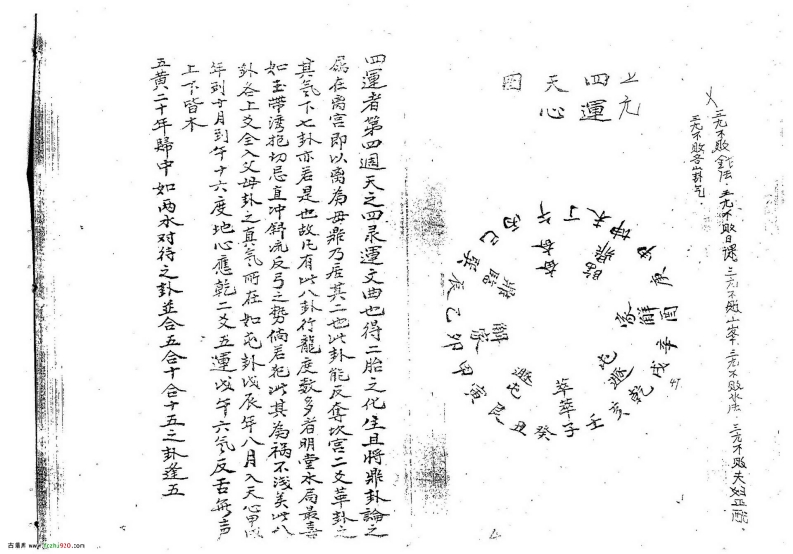 三元不敗日課 三元不敗山峯 三元不敗水法 三元不敗夫婦正配
三元不敗各山卦气
上元
四運
天心
图
午丁未坤
庚酉辛戌乾亥壬子癸丑艮寅甲卯乙辰巽巳丙
臨鼎
蒙解
屯遯
萃萃
遯屯
解蒙
鼎臨
四運者第四週天之四录運文曲也得二胎之化生且將鼎卦論之
居在离宮即以离為母鼎乃居其二也此卦能反奪坎宮二爻革卦之
其气下七卦亦若是也故凡有此八卦行龍度数多者明堂水局最喜
如玉帶湾抱切忌直冲斜流反弓之勢倘若犯此其為禍不浅矣此八
卦各上爻全入父母卦之真气所在如屯卦戊辰年八月入天心甲戌
年到十月到午十六度地心應乾二爻五運戊午六气反舌無声
上下皆木
五黄二十年歸中如两水对待之卦並合五合十合十五之卦逢五